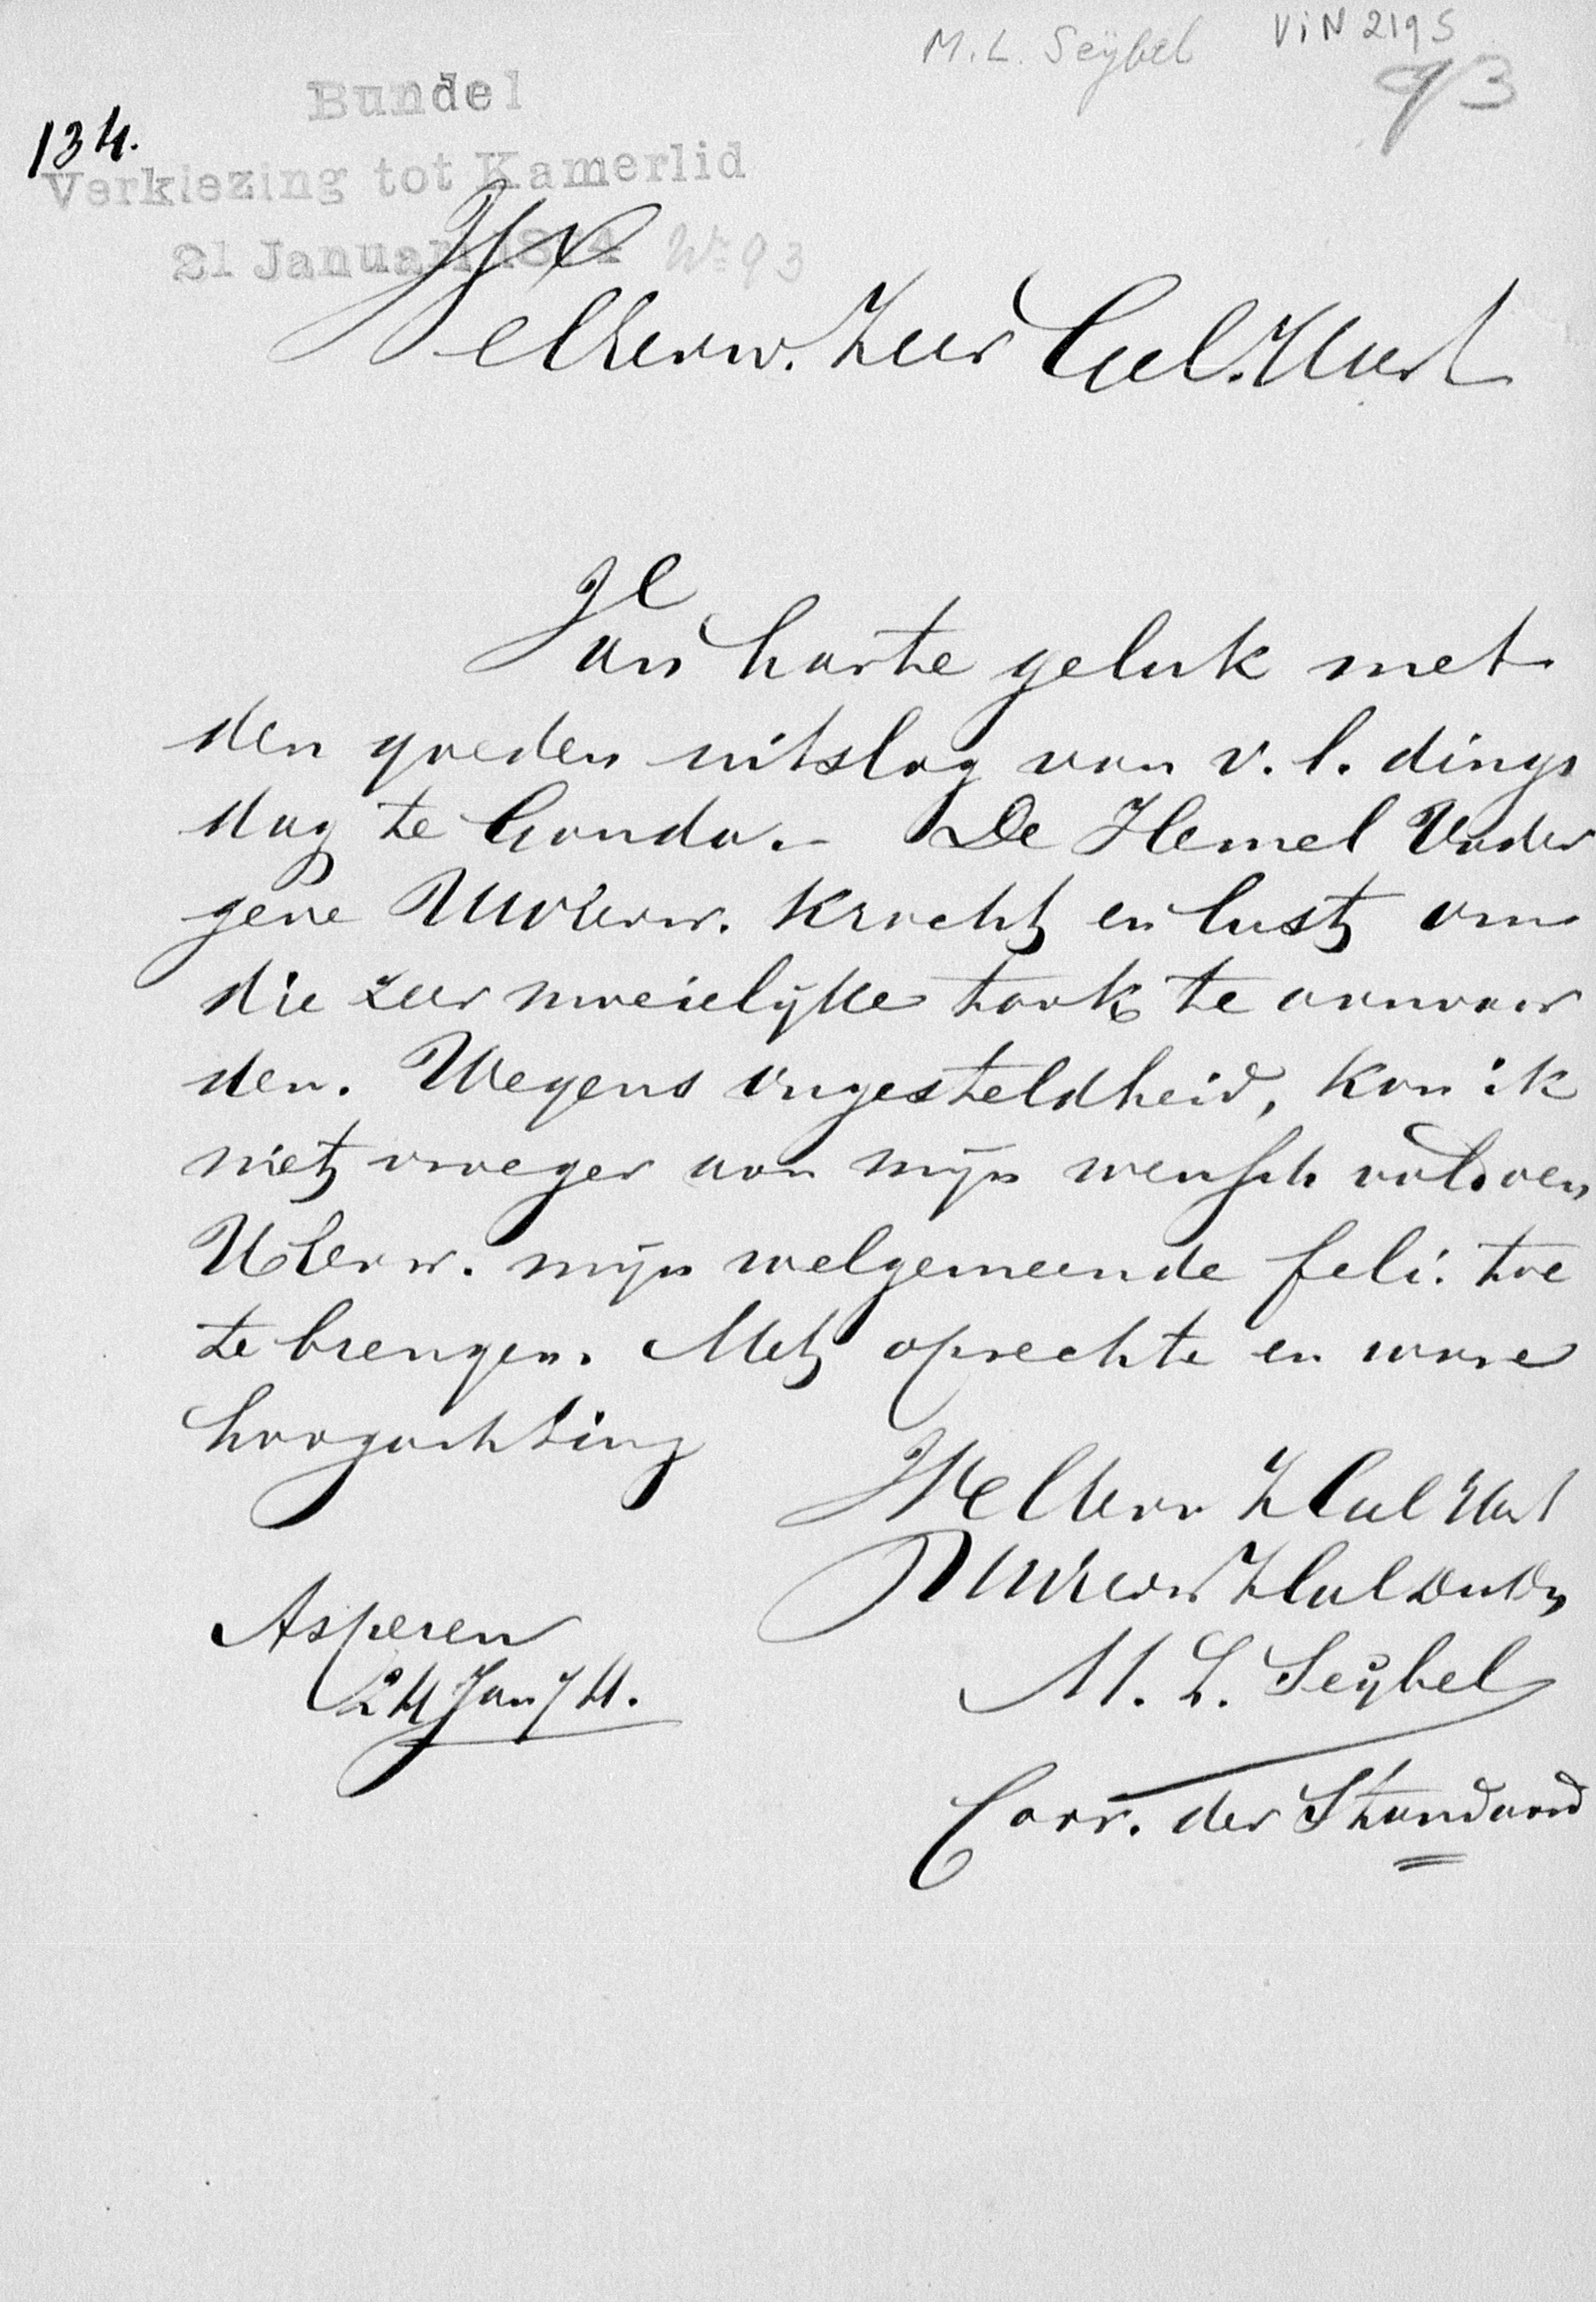 M. L. Seÿbel ViN 2195
93
134.
Bundel
Verkiezing tot Kamerlid
21 Januari 1874 No 93
WelEerw. Zeer Gel. Heer!
Van harte geluk met
den goeden uitslag van v. l. dings
dag te Gouda.- De Hemel Vader
geve UwEerw. kracht en lust om
die zeer moeielijke taak te aanvaar
den. Wegens ongesteldheid, kon ik
niet vroeger aan mijn wensch voldoen
UEerw. mijn welgemeende feli. toe
te brengen. Met oprechte en ware
hoogachting
WelEerw Z Gel Heer!
UwEerw Z Gel
Asperen
24 Jan 74.
M. L. Seÿbel
Corr. der Standaard